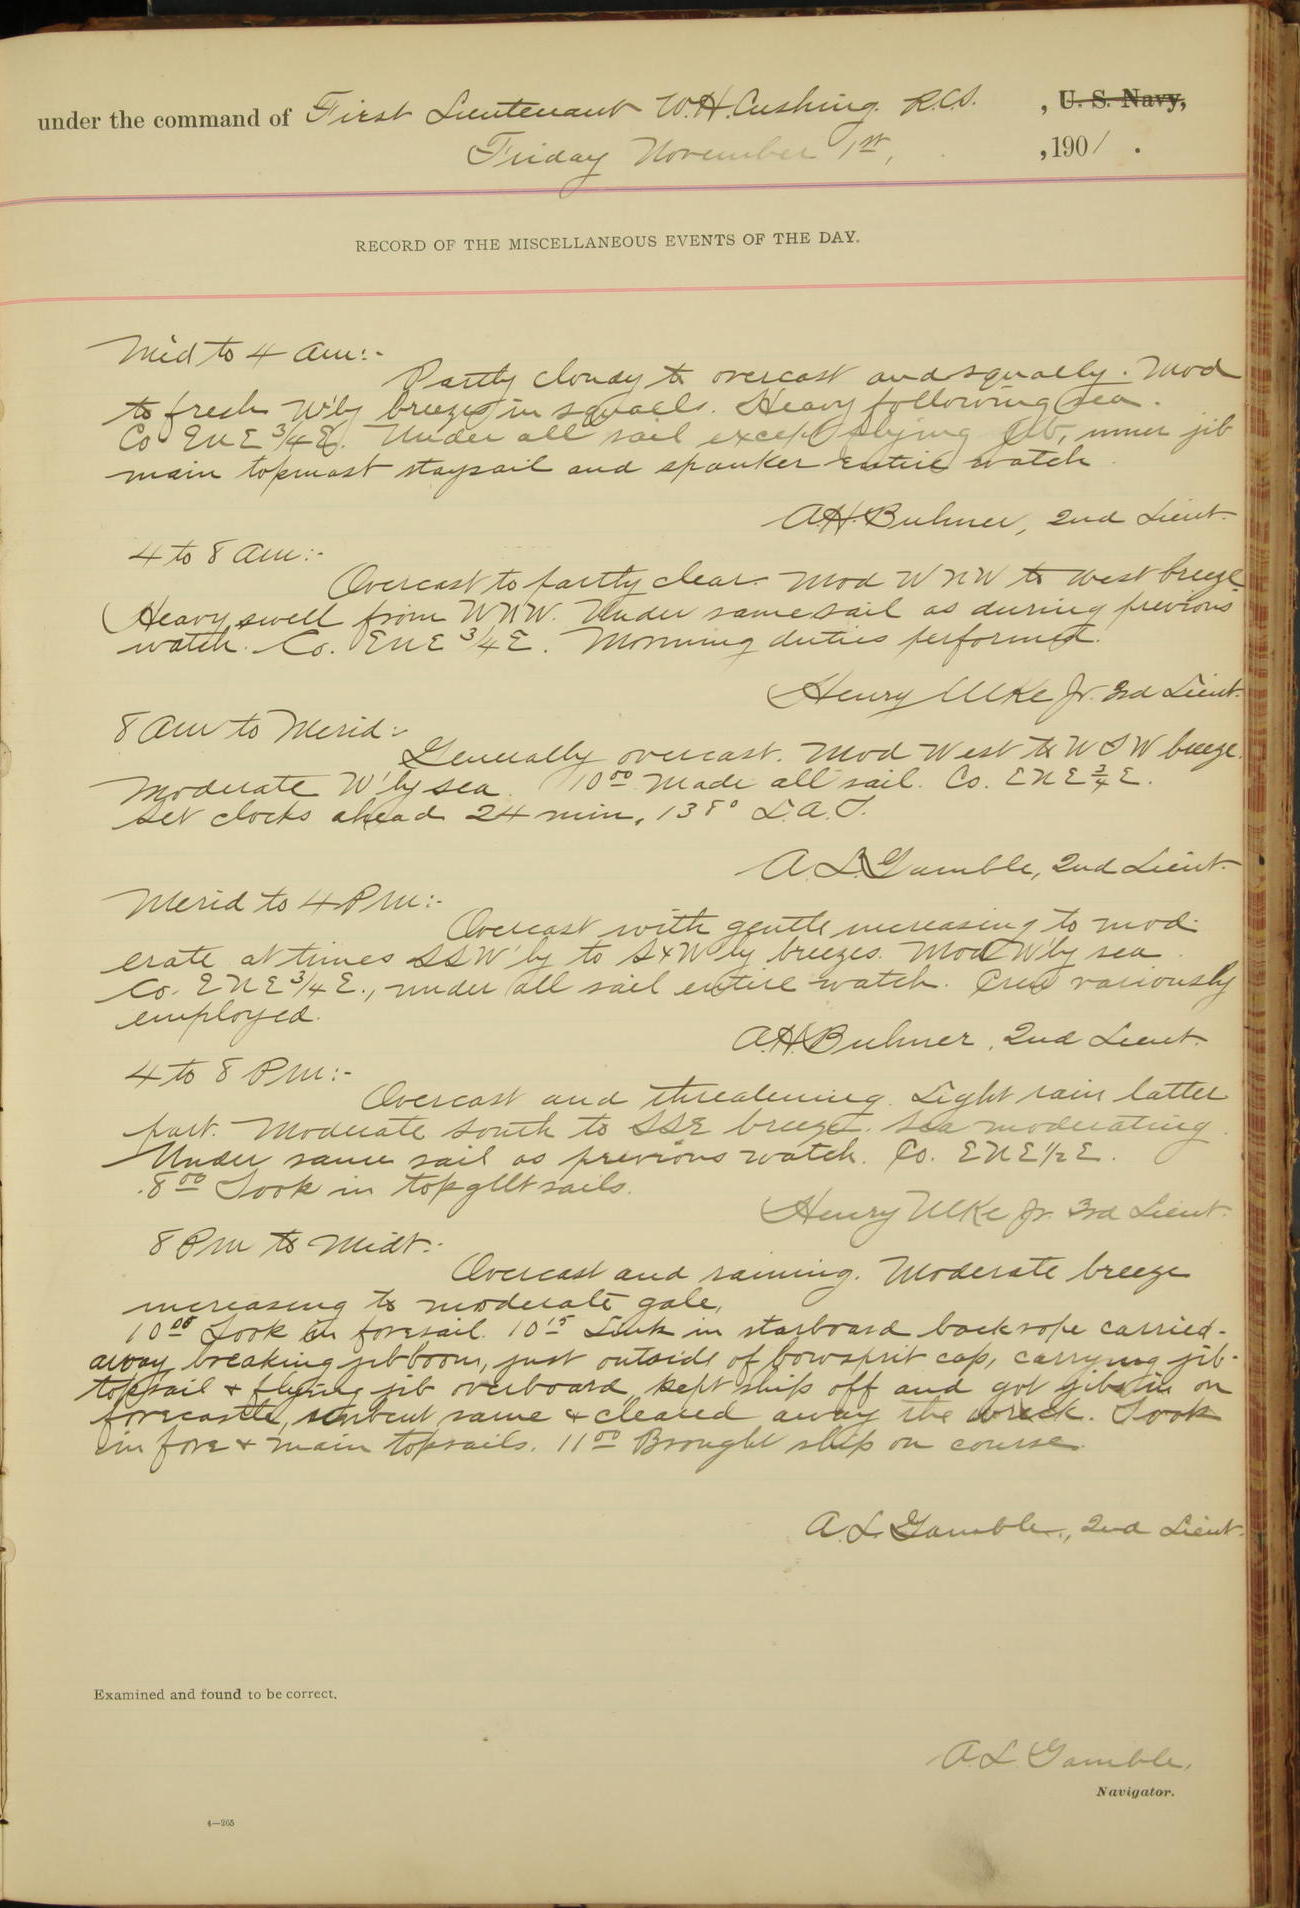 under the command of First Lieutenant W.H. Cushing. R.C.S. , U. S. Navy,
Friday November 1st, , 1901 .
RECORD OF THE MISCELLANEOUS EVENTS OF THE DAY.
Mid to 4 am:-
Partly cloudy to overcast and squally. Mod
to fresh W'ly breezes in squalls. Heavy following sea.
Co ENE 3/4 E. Under all sail except flying jib, inner jib
main topmast staysail and spanker entire watch.
A.H. Buhner, 2nd Lieut.
4 to 8 am:-
Overcast to partly clear. Mod WNW to West breeze
Heavy swell from WNW. Under same sail as during previous
watch. Co. ENE 3/4 E. Morning duties performed.
Henry Ulke Jr. 3rd Lieut.
8 am to Merid:-
Generally overcast. Mod West to WSW breeze.
Moderate W'ly sea. 10 00 Made all sail. Co. ENE 3/4 E.
Set clocks ahead 24 min, L.A.T.
A. L. Gamble, 2nd Lieut.
Merid to 4 PM:-
Overcast with gentle increasing to mod-
erate at times SSW'ly to SxW'ly breezes. Mod W'ly sea.
Co. ENE 3/4 E., under all sail entire watch. Crew variously
employed.
A.H. Buhner, 2nd Lieut.
4 to 8 PM:-
Overcast and threatening. Light rain latter
part. Moderate south to SSE breeze. Sea moderating.
Under same sail as previous watch. Co. ENE 1/2 E.
8 00 Took in topgllt sails.
Henry Ulke Jr. 3rd Lieut.
8 PM to Midt:-
Overcast and raining. Moderate breeze
increasing to moderate gale.
10 05 Took in foresail. 10 15 Link in starboard backrope carried-
away breaking jibboom, just outside of bowsprit cap, carrying jib-
topsail & flying jib overboard, kept ship off and got jibs in on
forecastle, unbent same & cleared away the wreck. Took
in fore & main topsails. 11 00 Brought ship on course.
A. L. Gamble, 2nd Lieut.
Examined and found to be correct.
A. L. Gamble,
Navigator.
4—265